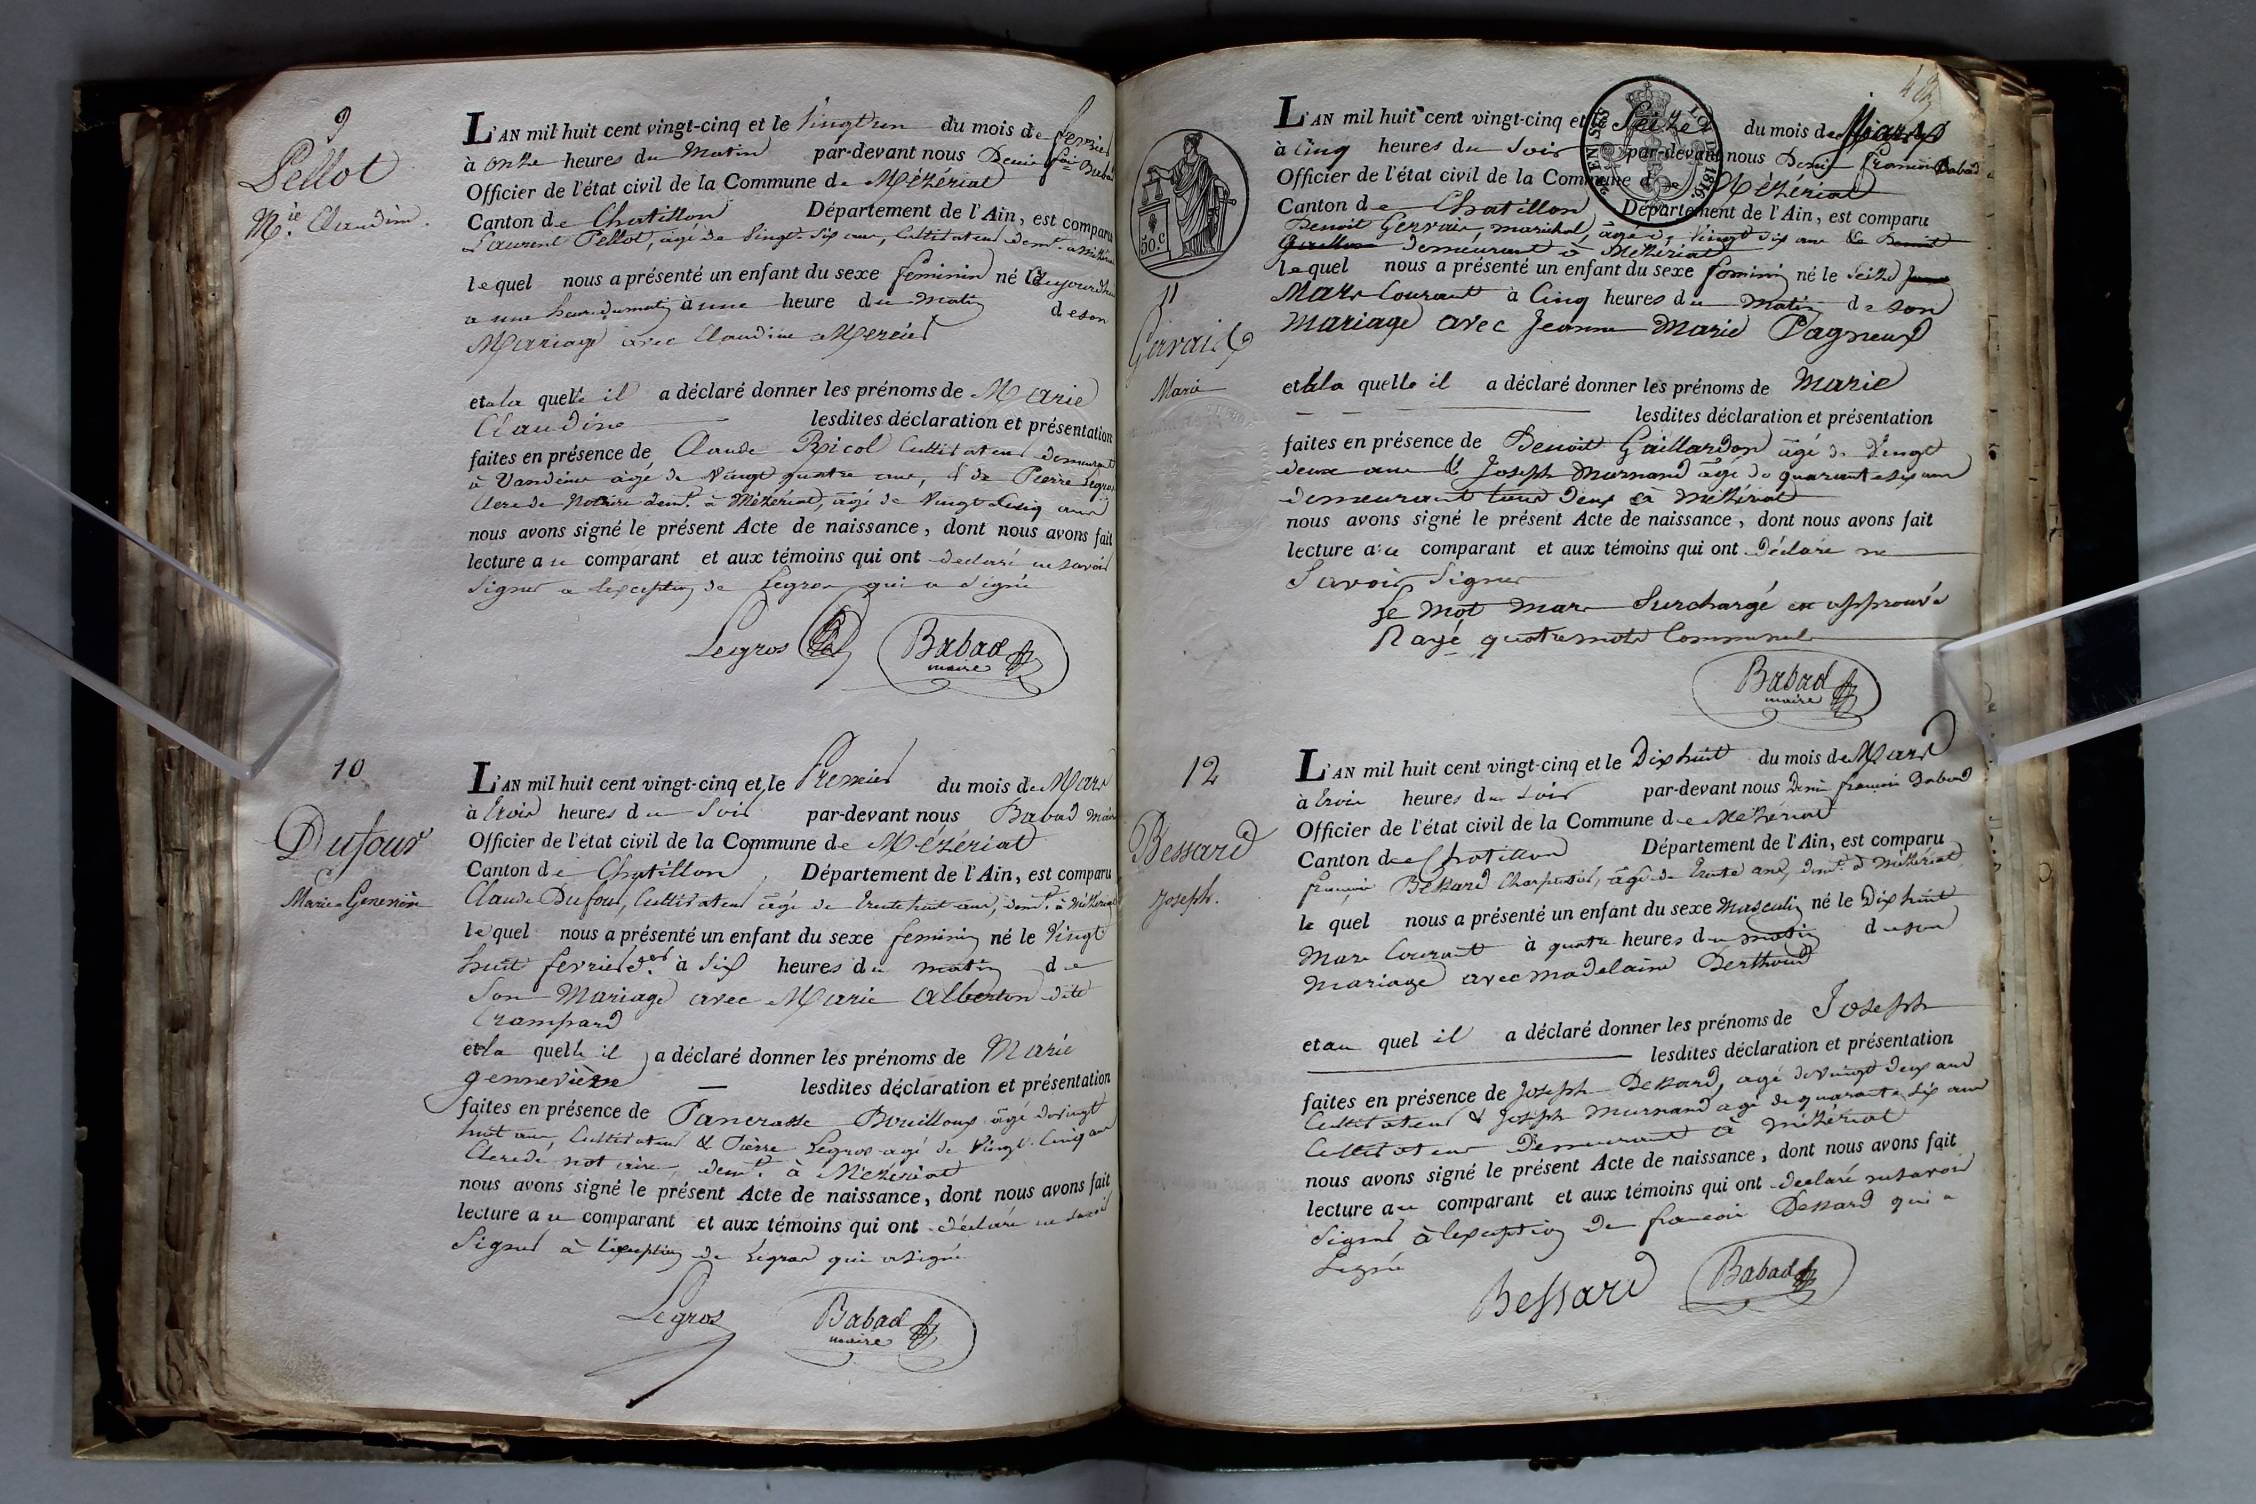 9
Pellot
M.ie Claudine.
L'AN mil huit cent vingt-cinq et le Vingt un du mois de fevrier
à onze heures du Matin par-devant nous Denis fois Babad
Officier de l'état civil de la Commune de Mézériat
Canton de Chatillon Département de l'Ain, est comparu
Laurent Pellot, agé de Vingt six ans, Cultivateur demt. a Mézériat
lequel nous a présenté un enfant du sexe feminin né le aujourdhui
a une heure du matin à une heure du matin de son
Mariage avec Claudine Mercier
et a la quelle il a déclaré donner les prénoms de Marie
Claudine lesdites déclaration et présentation
faites en présence de Claude Bricol Cultivateur demeurant
à Vandeins agé de Vingt quatre ans, & de Pierre Legros
Clerc de Notaire demt. à Mézériat, agé de Vingt Cinq ans
nous avons signé le présent Acte de naissance, dont nous avons fait
lecture au comparant et aux témoins qui ont declaré ne savoir
Signer a l'exception de Legros qui a Signé
Legros Babad
maire
10
Dufour
Marie Genevieve
L'AN mil huit cent vingt-cinq et le Premier du mois de Mars
à trois heures du Soir par-devant nous Babad maire
Officier de l'état civil de la Commune de Mézériat
Canton de Chatillon, Département de l'Ain, est comparu
Claude Dufour, Cultivateur agé de trente huit ans, demt. à Mézériat
lequel nous a présenté un enfant du sexe feminin né le Vingt
huit fevrier der. à Six heures du matin de
Son Mariage avec Marie Alberton dite
Crampard
et a la quelle il a déclaré donner les prénoms de Marie
gennevière — lesdites déclaration et présentation
faites en présence de Pancrasse Bouilloux agé de vingt
huit ans, Cultivateur & Pierre Legros agé de Vingt Cinq ans
Clerc de notaire demt. à Mézériat
nous avons signé le présent Acte de naissance, dont nous avons fait
lecture au comparant et aux témoins qui ont déclaré ne savoir
Signer à l'exception de Legros qui a signé
Legros Babad
maire
50.C
TIMBRE
LOI DE 1816
11
Gervais
Marie
L'AN mil huit cent vingt-cinq et le Seize du mois de Mars
à Cinq heures du Soir par-devant nous Denis François Babad
Officier de l'état civil de la Commune de Mézériat
Canton de Chatillon Département de l'Ain, est comparu
Benoit Gervais, marichal, âgé de, Vingt six ans & Benoit
Gaillard demeurant à Mézériat
lequel nous a présenté un enfant du sexe feminin né le Seize
Mars Courant à Cinq heures du matin de son
mariage avec Jeanne Marie Pagneux
et a la quelle il a déclaré donner les prénoms de Marie
lesdites déclaration et présentation
faites en présence de Benoit Gaillardon âgé de Vingt
deux ans & Joseph Murnand âgé de quarante six ans
demeurant tous deux à Mézériat
nous avons signé le présent Acte de naissance, dont nous avons fait
lecture au comparant et aux témoins qui ont déclaré ne
Savoir Signer
Le mot mars Surchargé est approuvé
Rayé quatre mots
Babad
maire
12
Bessard
Joseph.
L'AN mil huit cent vingt-cinq et le Dix huit du mois de Mars
à trois heures du soir par-devant nous Denis françois Babad
Officier de l'état civil de la Commune de Mézériat
Canton de Chatillon Département de l'Ain, est comparu
françois Bessard Charpentier, âgé de trente ans, demt. à Mézériat
le quel nous a présenté un enfant du sexe masculin né le Dix huit
Mars Courant à quatre heures du matin de son
mariage avec madelaine Berthoud
et au quel il a déclaré donner les prénoms de Joseph
lesdites déclaration et présentation
faites en présence de Joseph Bessard, agé de vingt deux ans
Cultivateur & Joseph Murnand agé de quarante six ans
Cultivateur Demeurant à Mézériat
nous avons signé le présent Acte de naissance, dont nous avons fait
lecture au comparant et aux témoins qui ont declaré ne savoir
Signer à l'exception de françois Bessard qui a
Signé
Bessard Babad